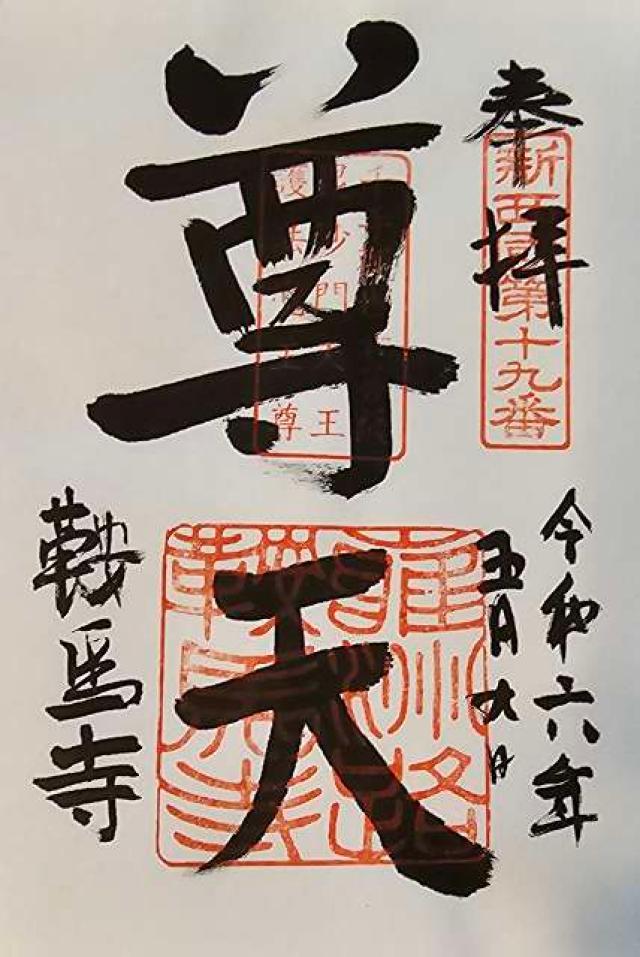 奉拝
新西国第十九番
毘沙門天王
護法魔王尊
尊天
令和六年
五月六日
鞍馬寺